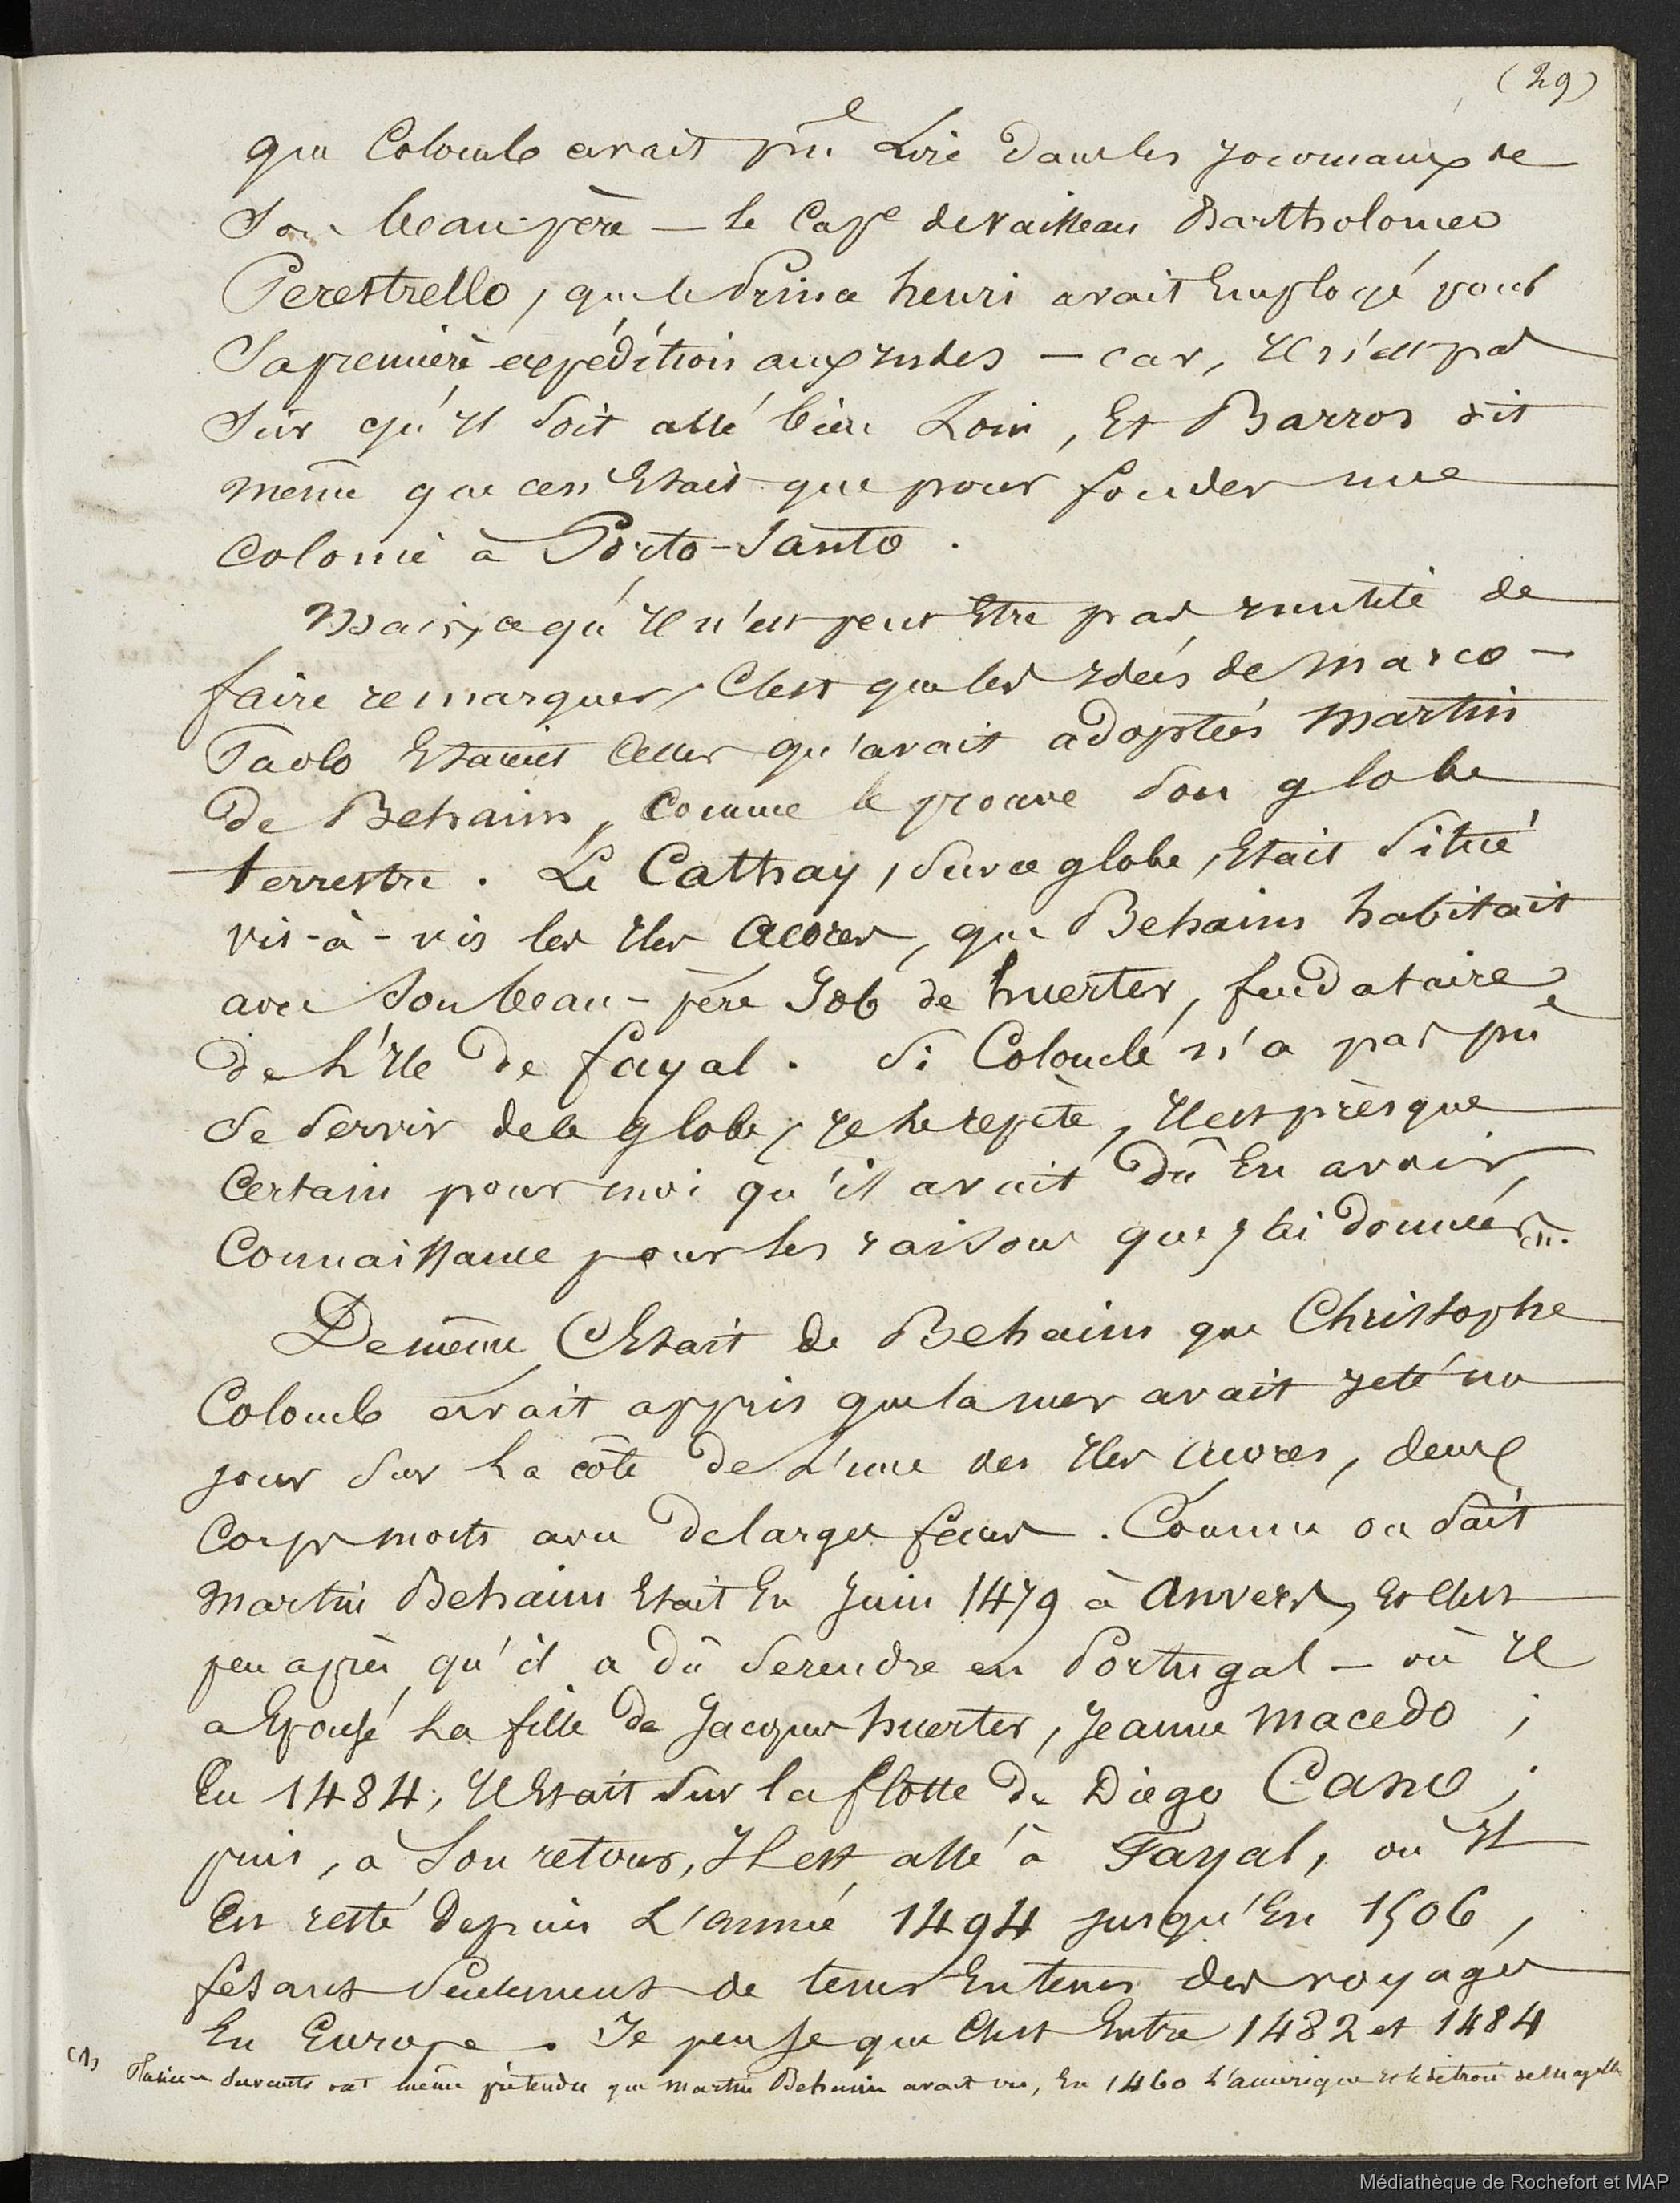 (29)
que Colomb avait pu Lire dans les journaux de
Son beau-père — le Cape de vaisseau Bartholomeo
Perestrello, que le Prince henri avait Employé pour
Sa première expédition aux indes — car, Il n'est pas
Sûr qu'Il Soit allé bien Loin, Et Barros dit
même que ce n'Etait que pour fonder une
Colonie à Porto-Santo.
Mais, ce qu'Il n'est peut Etre pas inutile de
faire remarquer, C'est que les Idées de Marco-
Paolo Etaient Celles qu'avait adoptées Martin
de Behaim, Comme le prouve Son globe
terrestre. Le Cathay, Sur ce globe, Etait Situé
vis-à-vis les Iles Acores, que Behaim habitait
avec Son beau-père Job de huerter, feudataire
de L'Ile de fayal. Si Colomb n'a pas pu
Se Servir de ce globe, Je le répète, Il est presque
Certain pour moi qu'il avait dû En avoir
Connaissance pour les raisons que j'ai données (1).
De même C'Etait de Behaim que Christophe
Colomb avait appris que la mer avait jeté un
jour Sur La côte de L'une des Iles Acores, deux
Corps morts avec de larges faces. Comme on Sait
Martin Behaim Etait En Juin 1479 à Anvers, Et C'est
peu après qu'il a dû Se rendre en Portugal — où Il
a Epousé La fille de Jacques huerter, Jeanne Macedo ;
En 1484, Il Etait Sur la flotte de Diego Cano ;
puis, à Son retour, Il est allé à Fayal, où Il
Est resté depuis L'année 1494 jusqu'En 1506,
fesant Seulement de tems En tems des voyages
En Europe. Je pense que C'est Entre 1482 et 1484
(1) Plusieurs Savants ont même prétendu que Martin Behaim avait vu, En 1460 L'amérique et le détroit de Magellan
Médiathèque de Rochefort et MAP